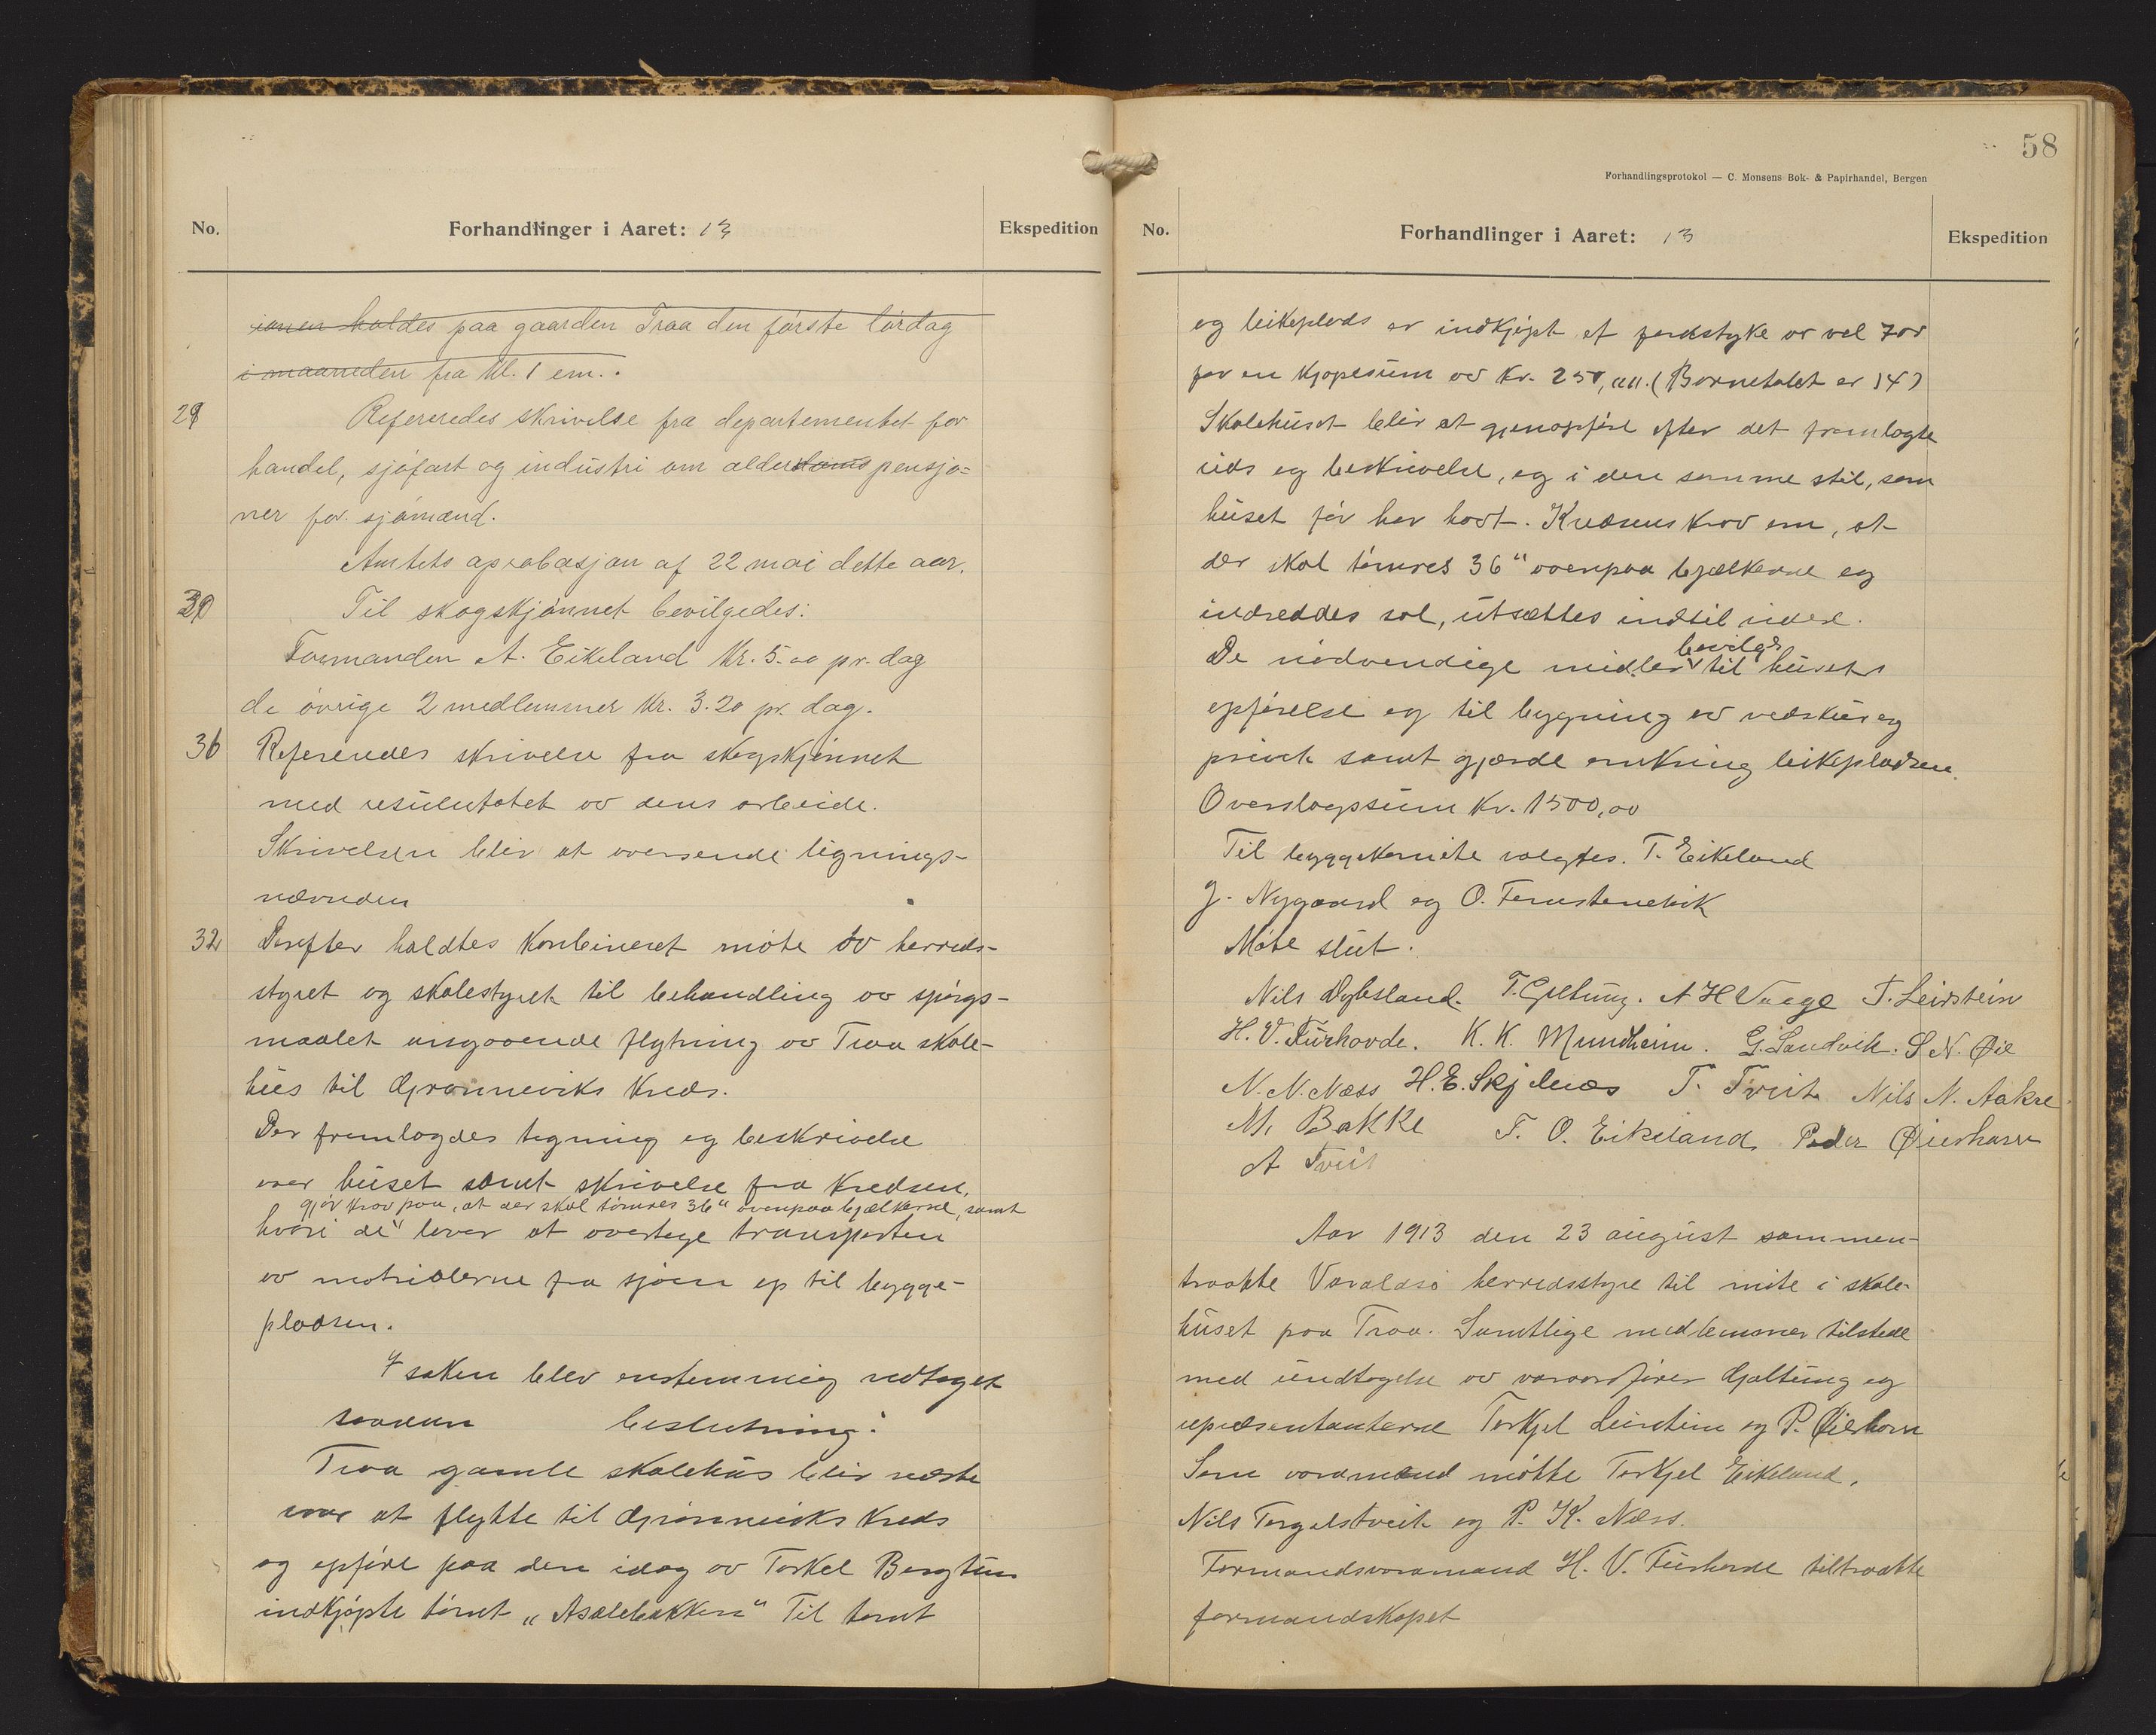 No.
Forhandlinger i Aaret: 13
Ekspedition
ionen holdes paa gaarden Traa den første lørdag
i maaneden fra kl. 1 em.
29
Refereredes skrivelse fra departementet for
handel, sjøfart og industri om alderdoms pensjo=
ner for sjømænd.
Amtets aprobasjon af 22 mai dette aar.
30
Til skogskjønnet bevilgedes:
Formanden A. Eikeland Kr. 5.00 pr. dag
de øvrige 2 medlemmer Kr. 3.20 pr. dag.
36
Refereredes skrivelse fra skogskjønnet
med resulutatet av dens arbeide.
Skrivelsen blir at oversende lignings-
nævnden
32
Derefter holdtes Konbineret møte av herreds-
styret og skolestyret til behandling av spørgs-
maalet angaaende flytning av Traa skole-
hus til Grønneviks Kreds.
Der fremlagdes tegning og beskrivelse
over huset samt skrivelse fra Kredsen,
gjør krav paa, at der skal tømres 36" ovenpaa bjælkerne, samt
hvori de lover at overtage transporten
av matrialerne fra sjøen op til bygge-
pladsen.
I saken blev enstemmig vedtaget
saadan beslutning:
Traa gamle skolehus blir næste
vaar at flytte til Grønneviks Kreds
og opføre paa den idag av Torkel Bergtun
indkjøpte tomt „Asalebakken" Til tomt
58
Forhandlingsprotokol — C. Monsens Bok- & Papirhandel, Bergen
No.
Forhandlinger i Aaret: 13
Ekspedition
og leikeplads er indkjøpt et jordstyke av vel 7ar
for en Kjøpesum av Kr. 250,00. (Barnetalet er 14)
Skolehuset blir at gjenopføre efter det fremlagte
rids og beskrivelse, og i den samme stil, som
huset før har havt. Kredsens krav om, at
der skal tømres 36" ovenpaa bjælkerne og
indreddes sal, utsættes indtil videre.
bevilges
De nødvendige midler til husets
opførelse og til bygning av vedskur og
privet samt gjærde omkring leikepladsen.
Overslagssum Kr. 1500,00
Til byggekomite valgtes. T. Eikeland
J. Nygaard og O. Femstenevik
Møte slut.
Nils Dybsland. T. Gjeltung. A H Vaage T. Leirstein
H. V. Furhovde. K. K. Mundheim. G. Sandvik. S. N. Øie
N. N. Næss H. E. Skjelnæs T. Tveit Nils N. Aakre
M. Bakke T. O. Eikeland Peder Øierhavn
A Tveit
Aar 1913 den 23 august sammen-
traatte Varaldsø herredsstyre til møte i skole-
huset paa Traa. Samtlige medlemmer tilstede
med undtagelse av varaordfører Gjeltung og
repræsentanterne Torkjel Leirstein og P. Øierhavn
Som varamænd møtte Torkjel Eikeland,
Nils Torgelstveit og P. K. Næss.
Formandsvaramand H. V. Furhovde tiltraatte
formandskapet